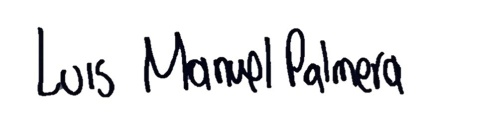 Luis Manuel Palmera